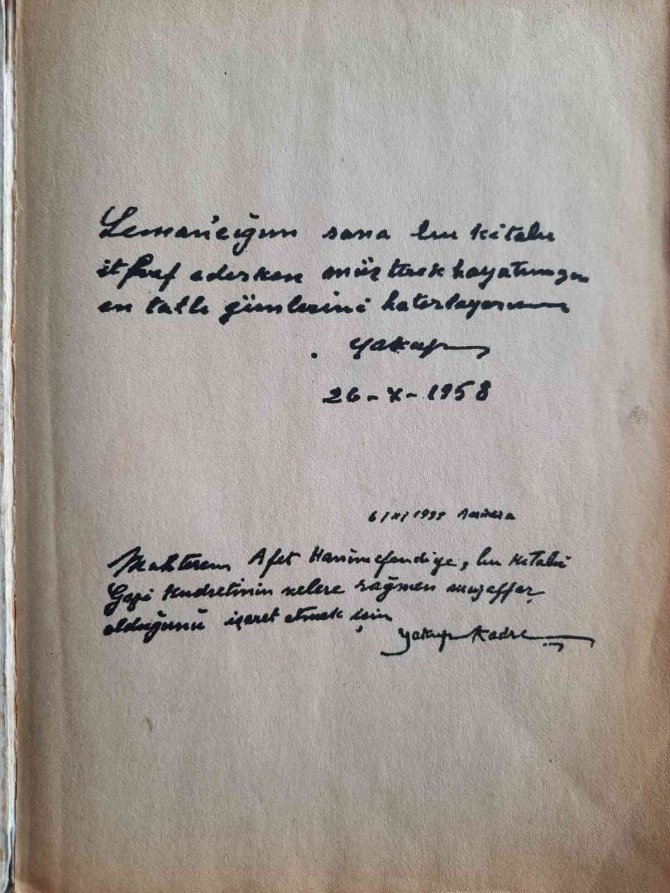 Leman'cığım sana bu kitabı
itfraf ederken müşterek hayatımızın
en tatlı günlerini hatırlayorum
Yakup
26-X-1958
6/XI/1933 Ankara
Muhterem Afet Hanımefendiye, bu kitabı
Gazi kudretinin nelere rağmen muzaffer
olduğunu işaret etmek için
Yakup Kadri